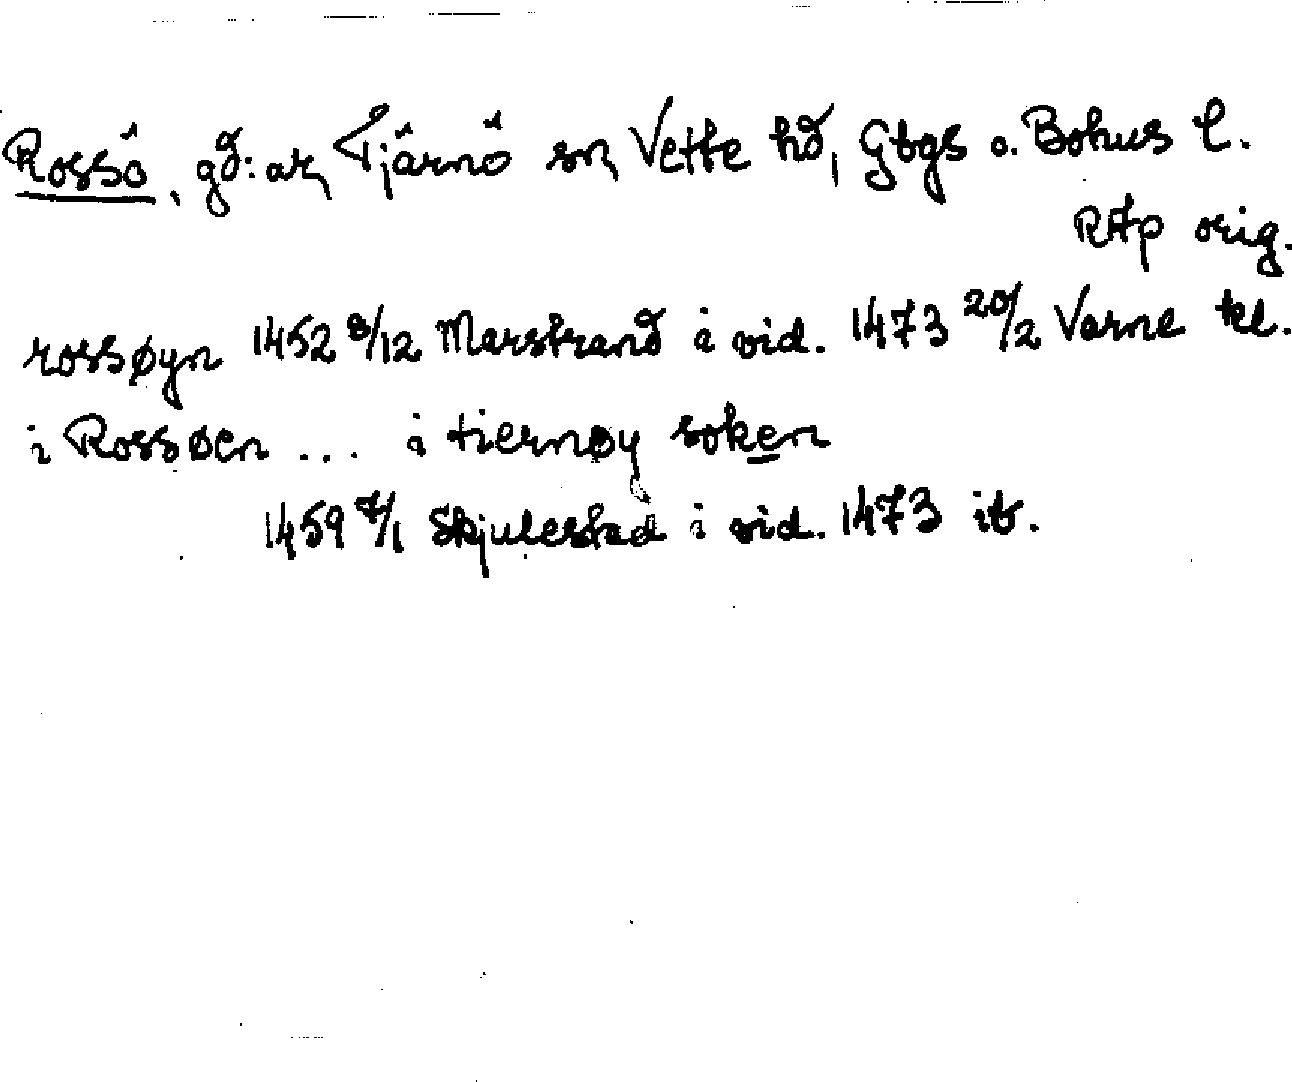 Rossö, gd: ar, Tjärnö sn, Vette hd, Gbgs o. Bohus l.
RAp orig.
rossøyn 1452 8/12 Marstrand i vid. 1473 20/2 Varne kl.
i Rossøen ... i tiernøy soken
1459 7/1 Skjulestad i vid. 1473 ib.